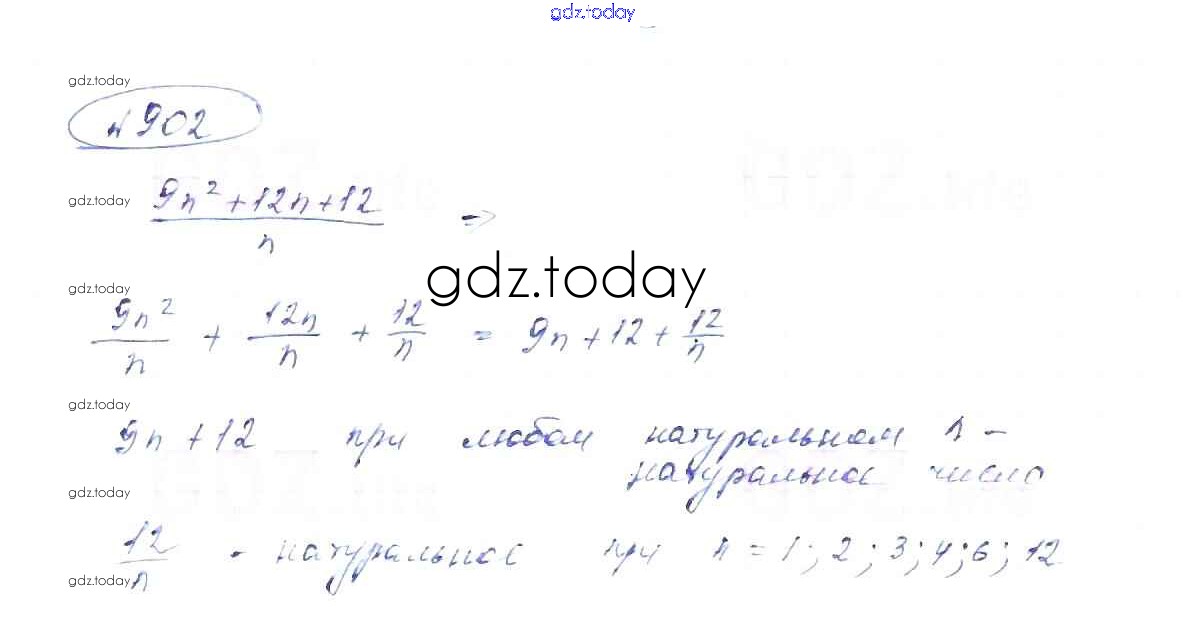 gdz.today
gdz.today
№ 902
gdz.today
9n² + 12n + 12 / n =>
gdz.today
gdz.today
9n² / n + 12n / n + 12 / n = 9n + 12 + 12 / n
gdz.today
9n + 12 при любом натуральном n –
натуральное число
gdz.today
12 / n - натуральное при n = 1; 2; 3; 4; 6; 12
gdz.today